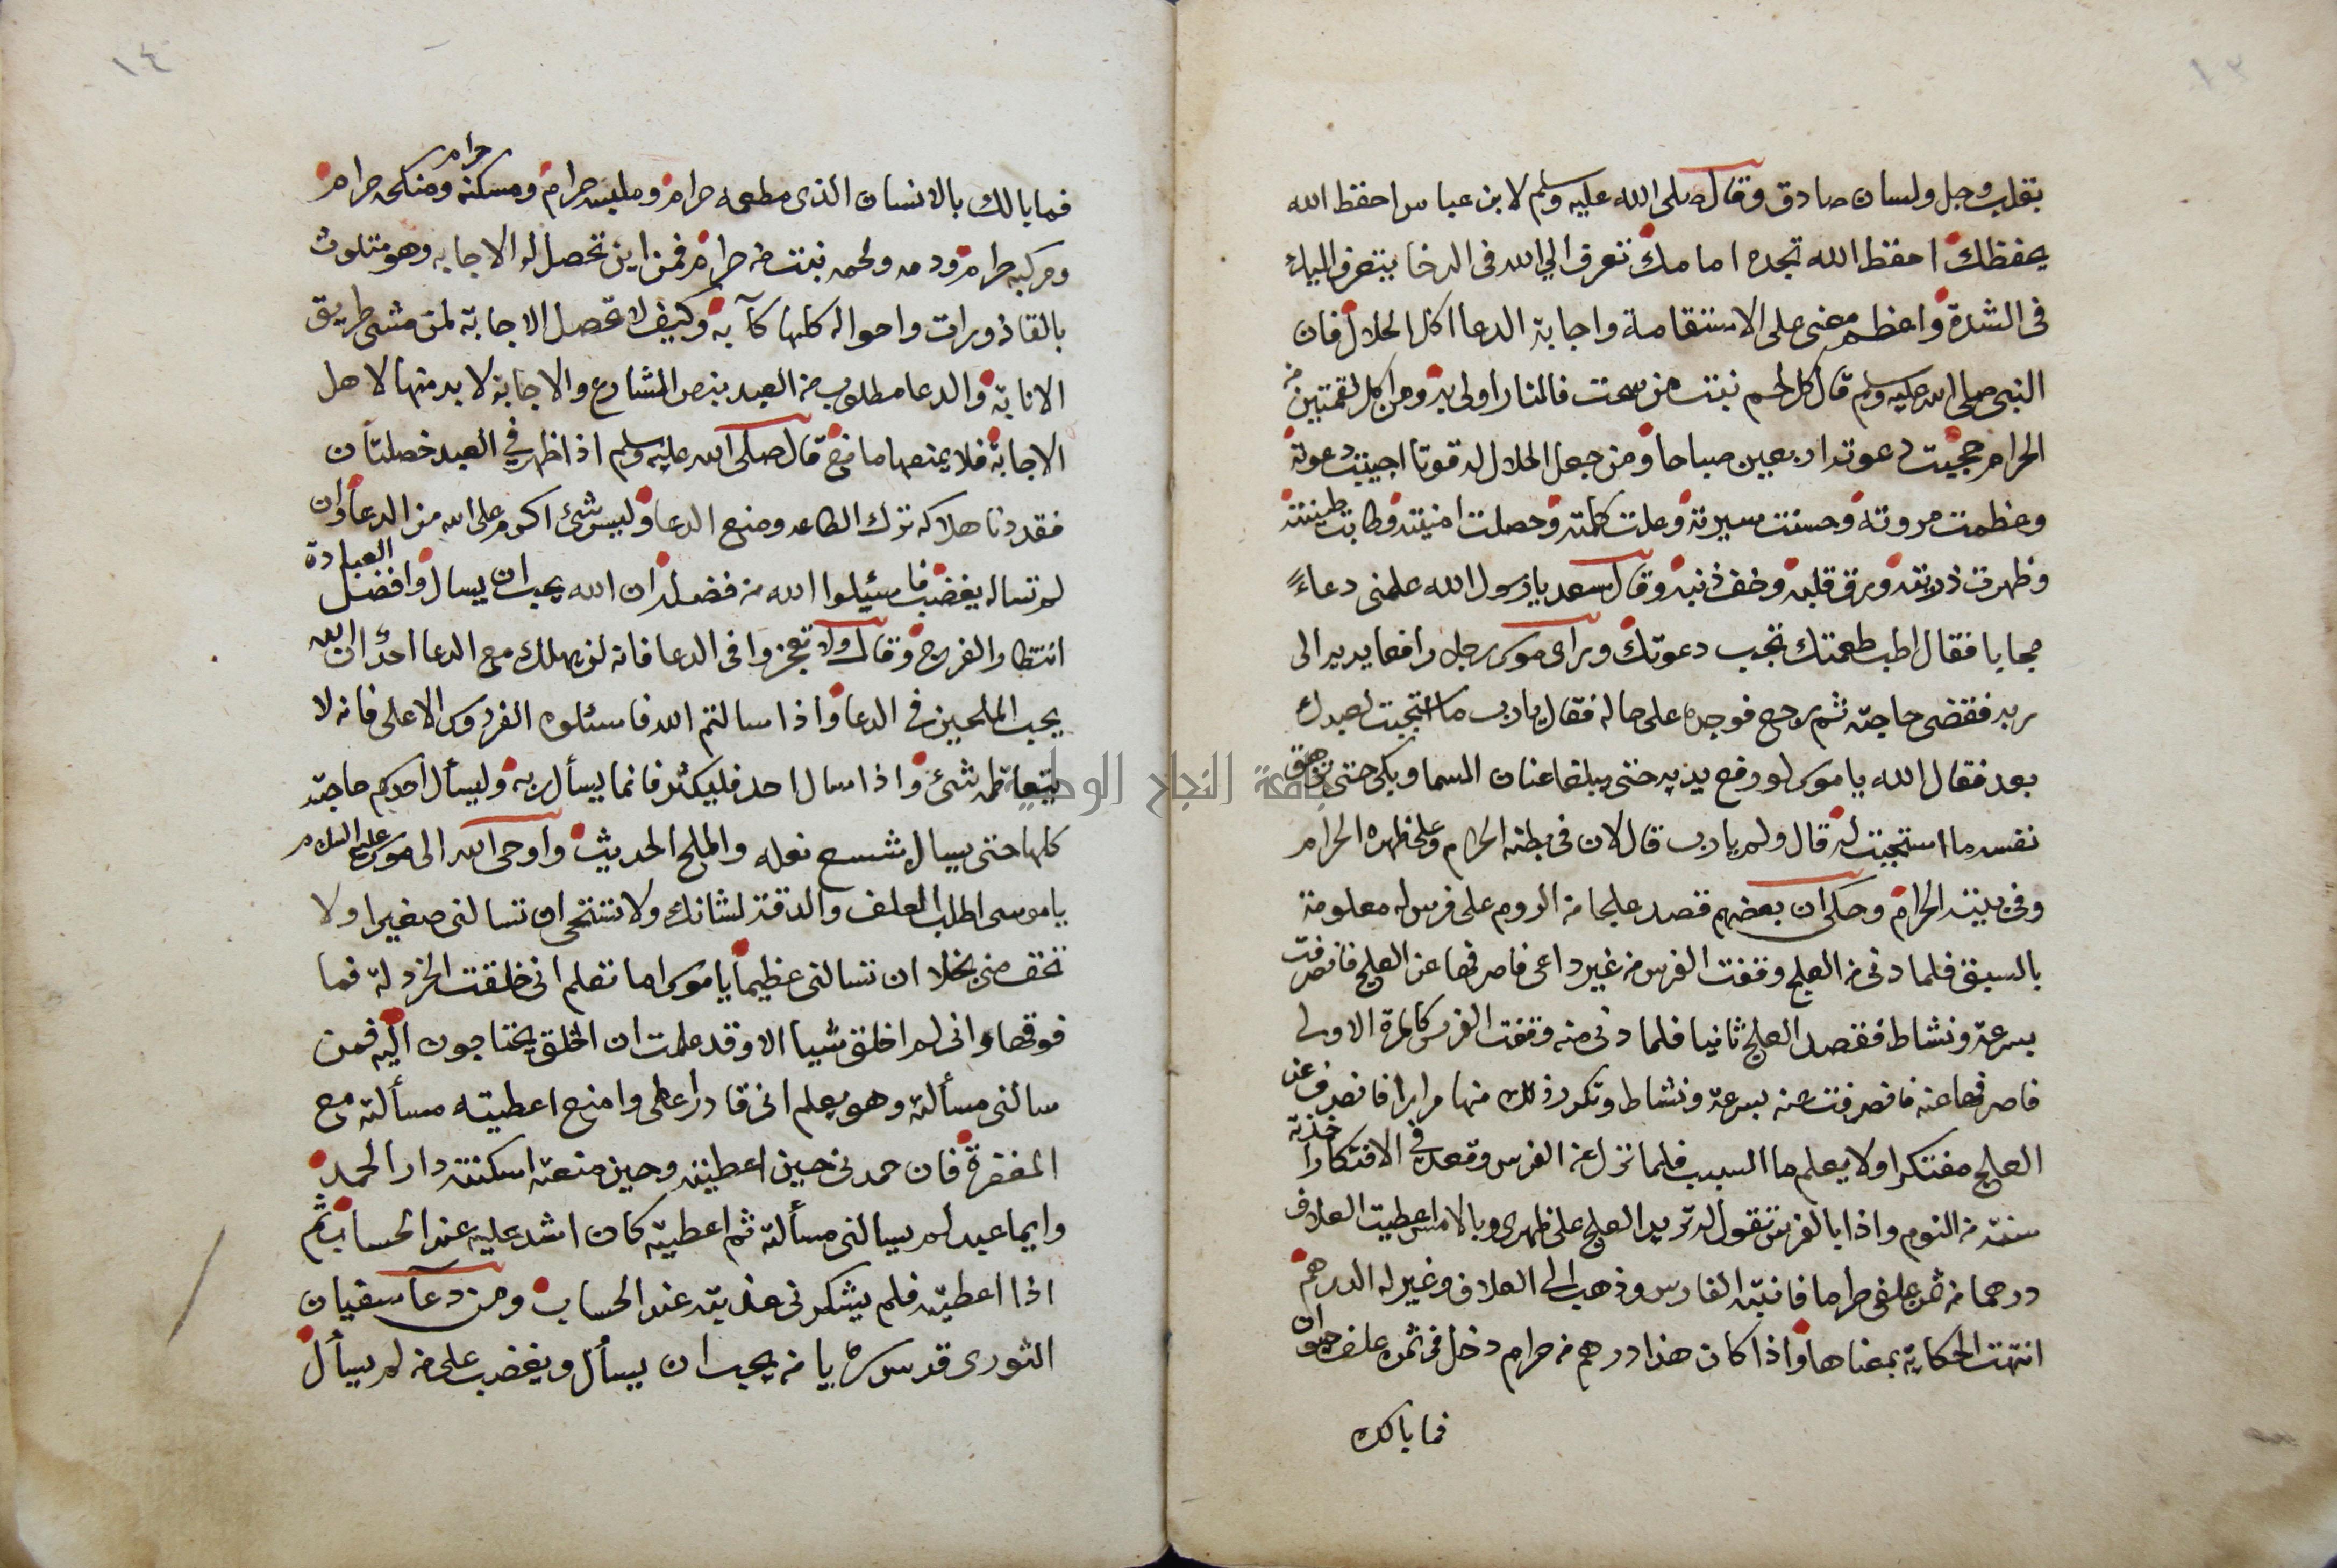 ١٣
بقلب وجل ولسان صادق وقال صلى الله عليه وسلم لابن عباس احفظ الله
يحفظك احفظ الله تجده امامك تعرف الي الله في الرخا يتعرف اليك
في الشدة واعظم معنى على الاستقامة واجابة الدعا اكل الحلال فان
النبي صلى الله عليه وسلم قال كل لحم نبت من سحت فالنار اولى به ومن اكل لقمتين من
الحرام حجبت دعوته اربعين صباحا ومن جعل الحلال له قوتا اجيبت دعوته
وعظمت مروته وحسنت سيرته وعلت كلمته وحصلت امنيته وطابت طينته
وظهرت ذريته ورق قلبه وخف ذنبه وقال سعد يارسول الله علمني دعاءً
مجابا فقال اطب طعمتك تجب دعوتك وراى موسى رجل رافعا يديه الى
ربه فقضى حاجته ثم رجع فوجده على حاله فقال يارب ما استجبت لعبدك
بعد فقال الله ياموسى لو رفع يديه حتى يبلغا عنان السما وبكى حتى تزهق
نفسه ما استجبت له قال ولم يارب قال لان في بطنه الحرام وعلى ظهره الحرام
وفي بيته الحرام وحكي ان بعضهم قصد علجا من الروم على فرس له معلومة
بالسبق فلما دنى من العلج وقفت الفرس من غير داعى فاصرفها عن العلج فانصرفت
بسرعة ونشاط فقصد العلج ثانيا فلما دنى منه وقفت الفرس كالمرة الاولى
فاصرفها عنه فانصرفت عنه بسرعة ونشاط وتكرر ذلك منها مرارا فانصرف عن
العلج مفتكرا ولا يعلم ما السبب فلما نزل عن الفرس وقعد في الافتكار اخذته
سنة من النوم واذا بالفرس تقول له تريد العلج على ظهري وبالامس اعطيت العلاف
درهما من ثمن علفي حراما فانتبه الفارس وذهب الى العلاف وغير له الدرهم
انتهت الحكاية بمعناها واذا كان هذا درهم من حرام دخل في ثمن علف حيوان
فما بالك
١٤
فما بالك بالانسان الذى مطعمه حرام وملبسه حرام ومسكنه حرام ومنكحه حرام
ومركبه حرام ودمه ولحمه نبتت من حرام فمن اين تحصل له الاجابه وهو متلوث
بالقاذورات واحواله كلها كآبه وكيف لا تحصل الاجابة لمن مشى طريق
الانابة والدعا مطلوب من العبد بنص الشارع والاجابة لا بد منها لاهل
الاجابة فلا يمنعها مانع قال صلى الله عليه وسلم اذا ظهر في العبد خصلتان
فقد دنا هلاكه ترك الطاعه ومنع الدعا وليس شئ اكرم على الله من الدعا وان
لم تساله يغضب فاسئلوا الله من فضله ان الله يحب ان يسال وافضل العبادة
انتظار الفرج وقال ولا تعجزوا في الدعا فانه لن يهلك مع الدعا احد ان الله
يحب الملحين في الدعا واذا سالتم الله فاسئلوه الفردوس الاعلى فانه لا
يتعاظمه شئ واذا سال احد فليكثر فانما يسأل ربه وليسأل احدكم حاجته
كلها حتى يسال شسع نعله والملح الحديث واوحى الله الى موسى عليه السلام
ياموسى اطلب العلف والدقة لشاتك ولا تستحى ان تسالنى صغيرا ولا
تخف منى بخلا ان تسالنى عظيما ياموسى اما تعلم انى خلقت الخردلة فما
فوقها وانى لم اخلق شيا الا وقد علمت ان الخلق يحتاجون اليه فمن
سالنى مسألة وهو يعلم انى قادر اعطى وامنع اعطيته مسألة مع
المغفرة فان حمدنى حين اعطيته وحين منعته اسكنته دار الحمد
وايما عبد لم يسالنى مسألة ثم اعطيته كان اشد عليه عند الحساب ثم
اذا اعطيته فلم يشكرنى عذبته عند الحساب ومن دعآ سفيان
الثورى قدس سره يا من يحب ان يسأل ويغضب على من لم يسأل
جامعة النجاح الوطنية